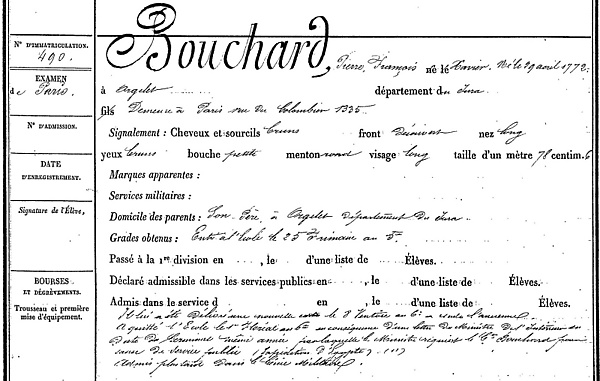 N° D'IMMATRICULATION.
490.
EXAMEN
de Paris.
N° D'ADMISSION.
DATE
D'ENREGISTREMENT.
Signature de l'Élève,
BOURSES
ET DÉGRÈVEMENTS.
Trousseau et première
mise d'équipement.
Bouchard, Pierre, François né le Xavier. Né le 29 avril 1772.
à Orgelet département du Jura
fils Demeure à Paris rue du Colombier 1335
Signalement : Cheveux et sourcils bruns front Découvert nez long
yeux bruns bouche petite menton rond visage long taille d'un mètre 78 centim. 6
Marques apparentes :
Services militaires :
Domicile des parents : Son Père, à Orgelet département du Jura
Grades obtenus : Entré à l'école le 25 Frimaire an 5.
Passé à la 1re division en , le d'une liste de Élèves.
Déclaré admissible dans les services publics en , le d'une liste de Élèves.
Admis dans le service d en , le d'une liste de Élèves.
Il lui a été délivré une nouvelle carte le 8 Ventôse an 6
A quitté l'Ecole le 1er Floréal an 6 en conséquence d'une lettre du Ministre de l'Intérieur en
date du Germinal même année par laquelle le Ministre requiert le Cen Bouchard pour
de service public (Expédition d'Egypte)
Admis plus tard dans le Génie Militaire